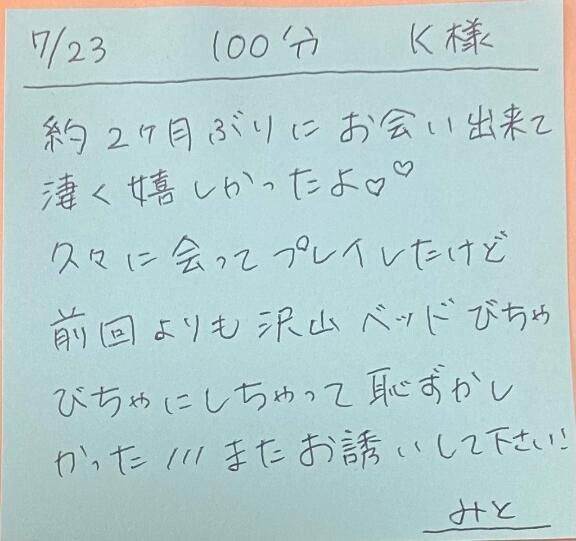 7/23 100分 K様
約2ヶ月ぶりにお会い出来て
凄く嬉しかったよ♡♡
久々に会ってプレイしたけど
前回よりも沢山ベッドびちゃ
びちゃにしちゃって恥ずかし
かった///またお誘いして下さい!
みと